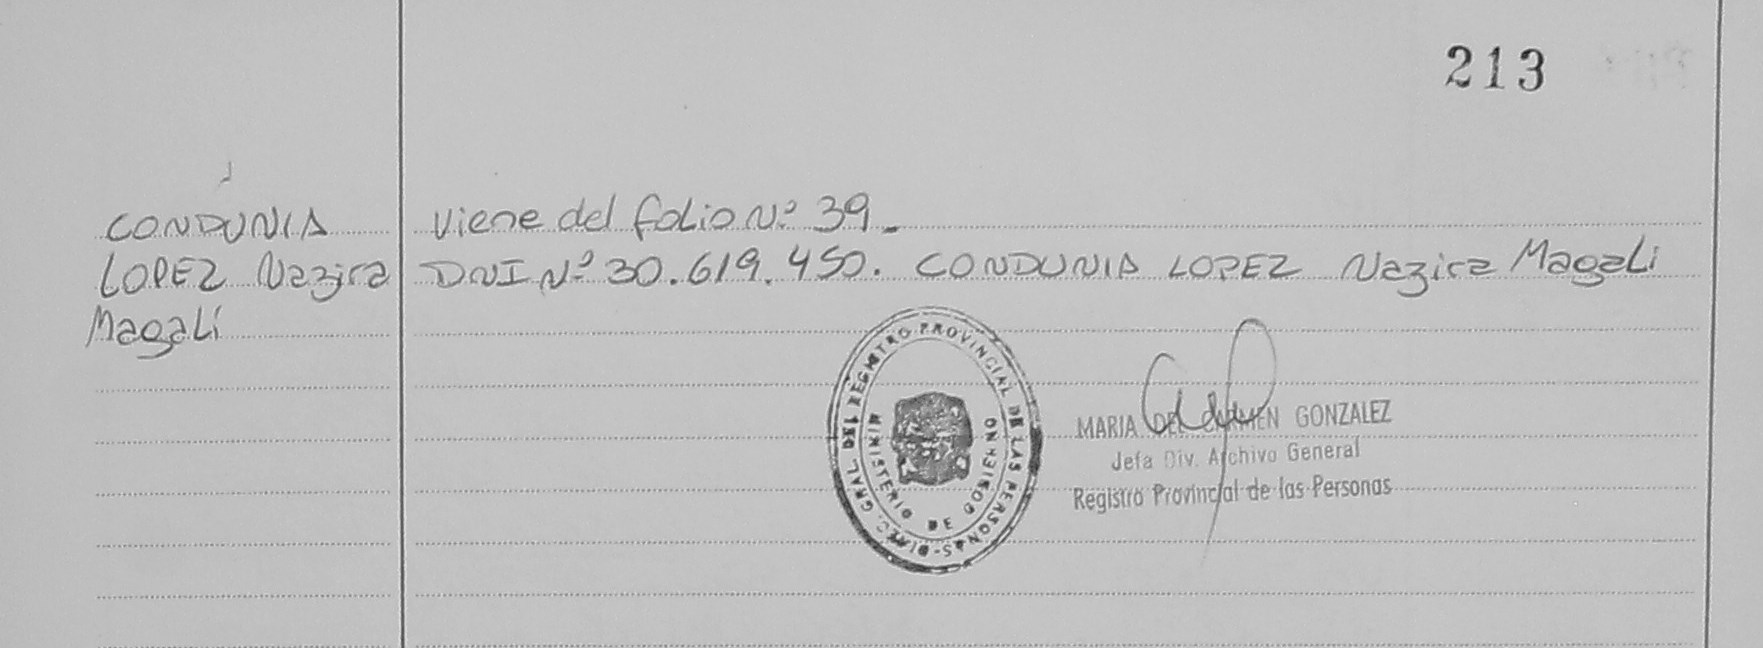 213
CONDUNIA
LOPEZ Nazira
Magali
Viene del folio Nº 39_
DNI Nº 30.619.450. CONDUNIA LOPEZ Nazira Magali
DIREC. GRAL DEL REGISTRO PROVINCIAL DE LAS PERSONAS-
MINISTERIO DE GOBIERNO
MARIA DEL CARMEN GONZALEZ
Jefa Div. Archivo General
Registro Provincial de las Personas